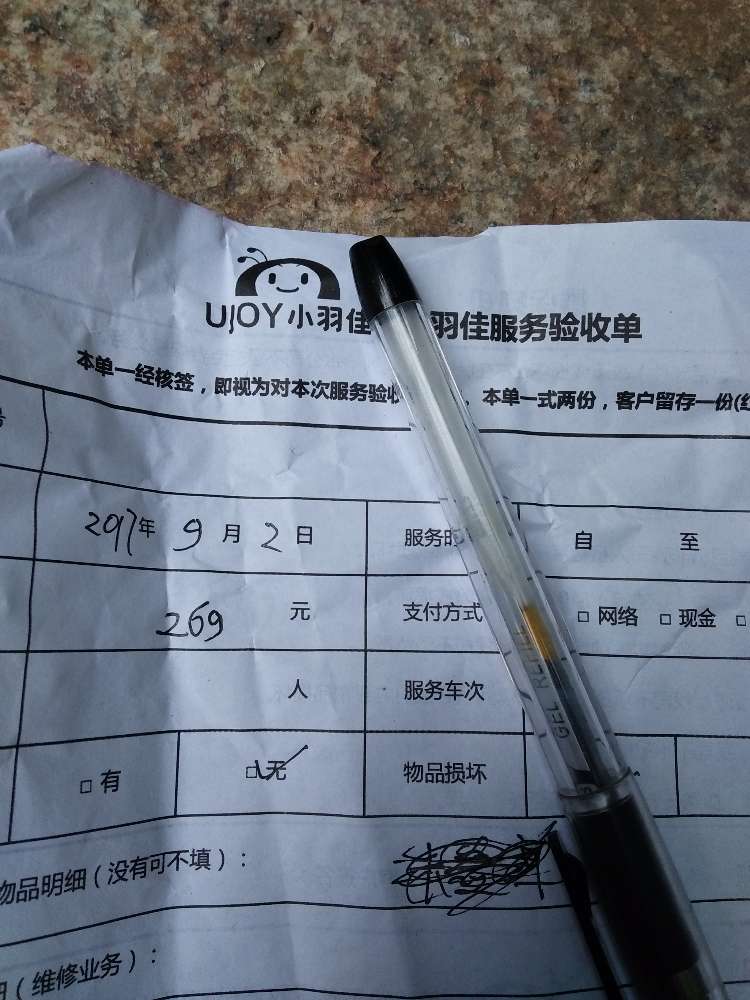 UJOY 小羽佳 羽佳服务验收单
本单一经核签，即视为对本次服务验收 本单一式两份，客户留存一份
2017年 9月 2日 服务时 自 至
269 元 支付方式 □ 网络 □ 现金 □
人 服务车次
□ 有 □ 无 物品损坏
物品明细（没有可不填）：
（维修业务）：
GEL